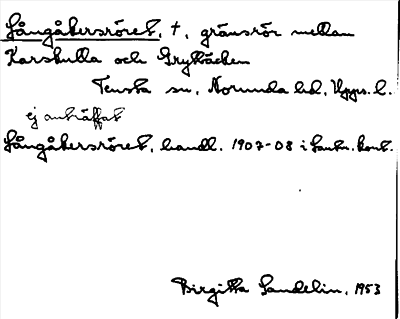 Långåkersröret, †, gränsrör mellan
Karskulla och Grytbäcken
Tensta sn, Norunda hd, Upps. l.
ej anträffat
Långåkersröret, handl. 1907-08 i Lantm. kont.
Birgitta Sandelin, 1953